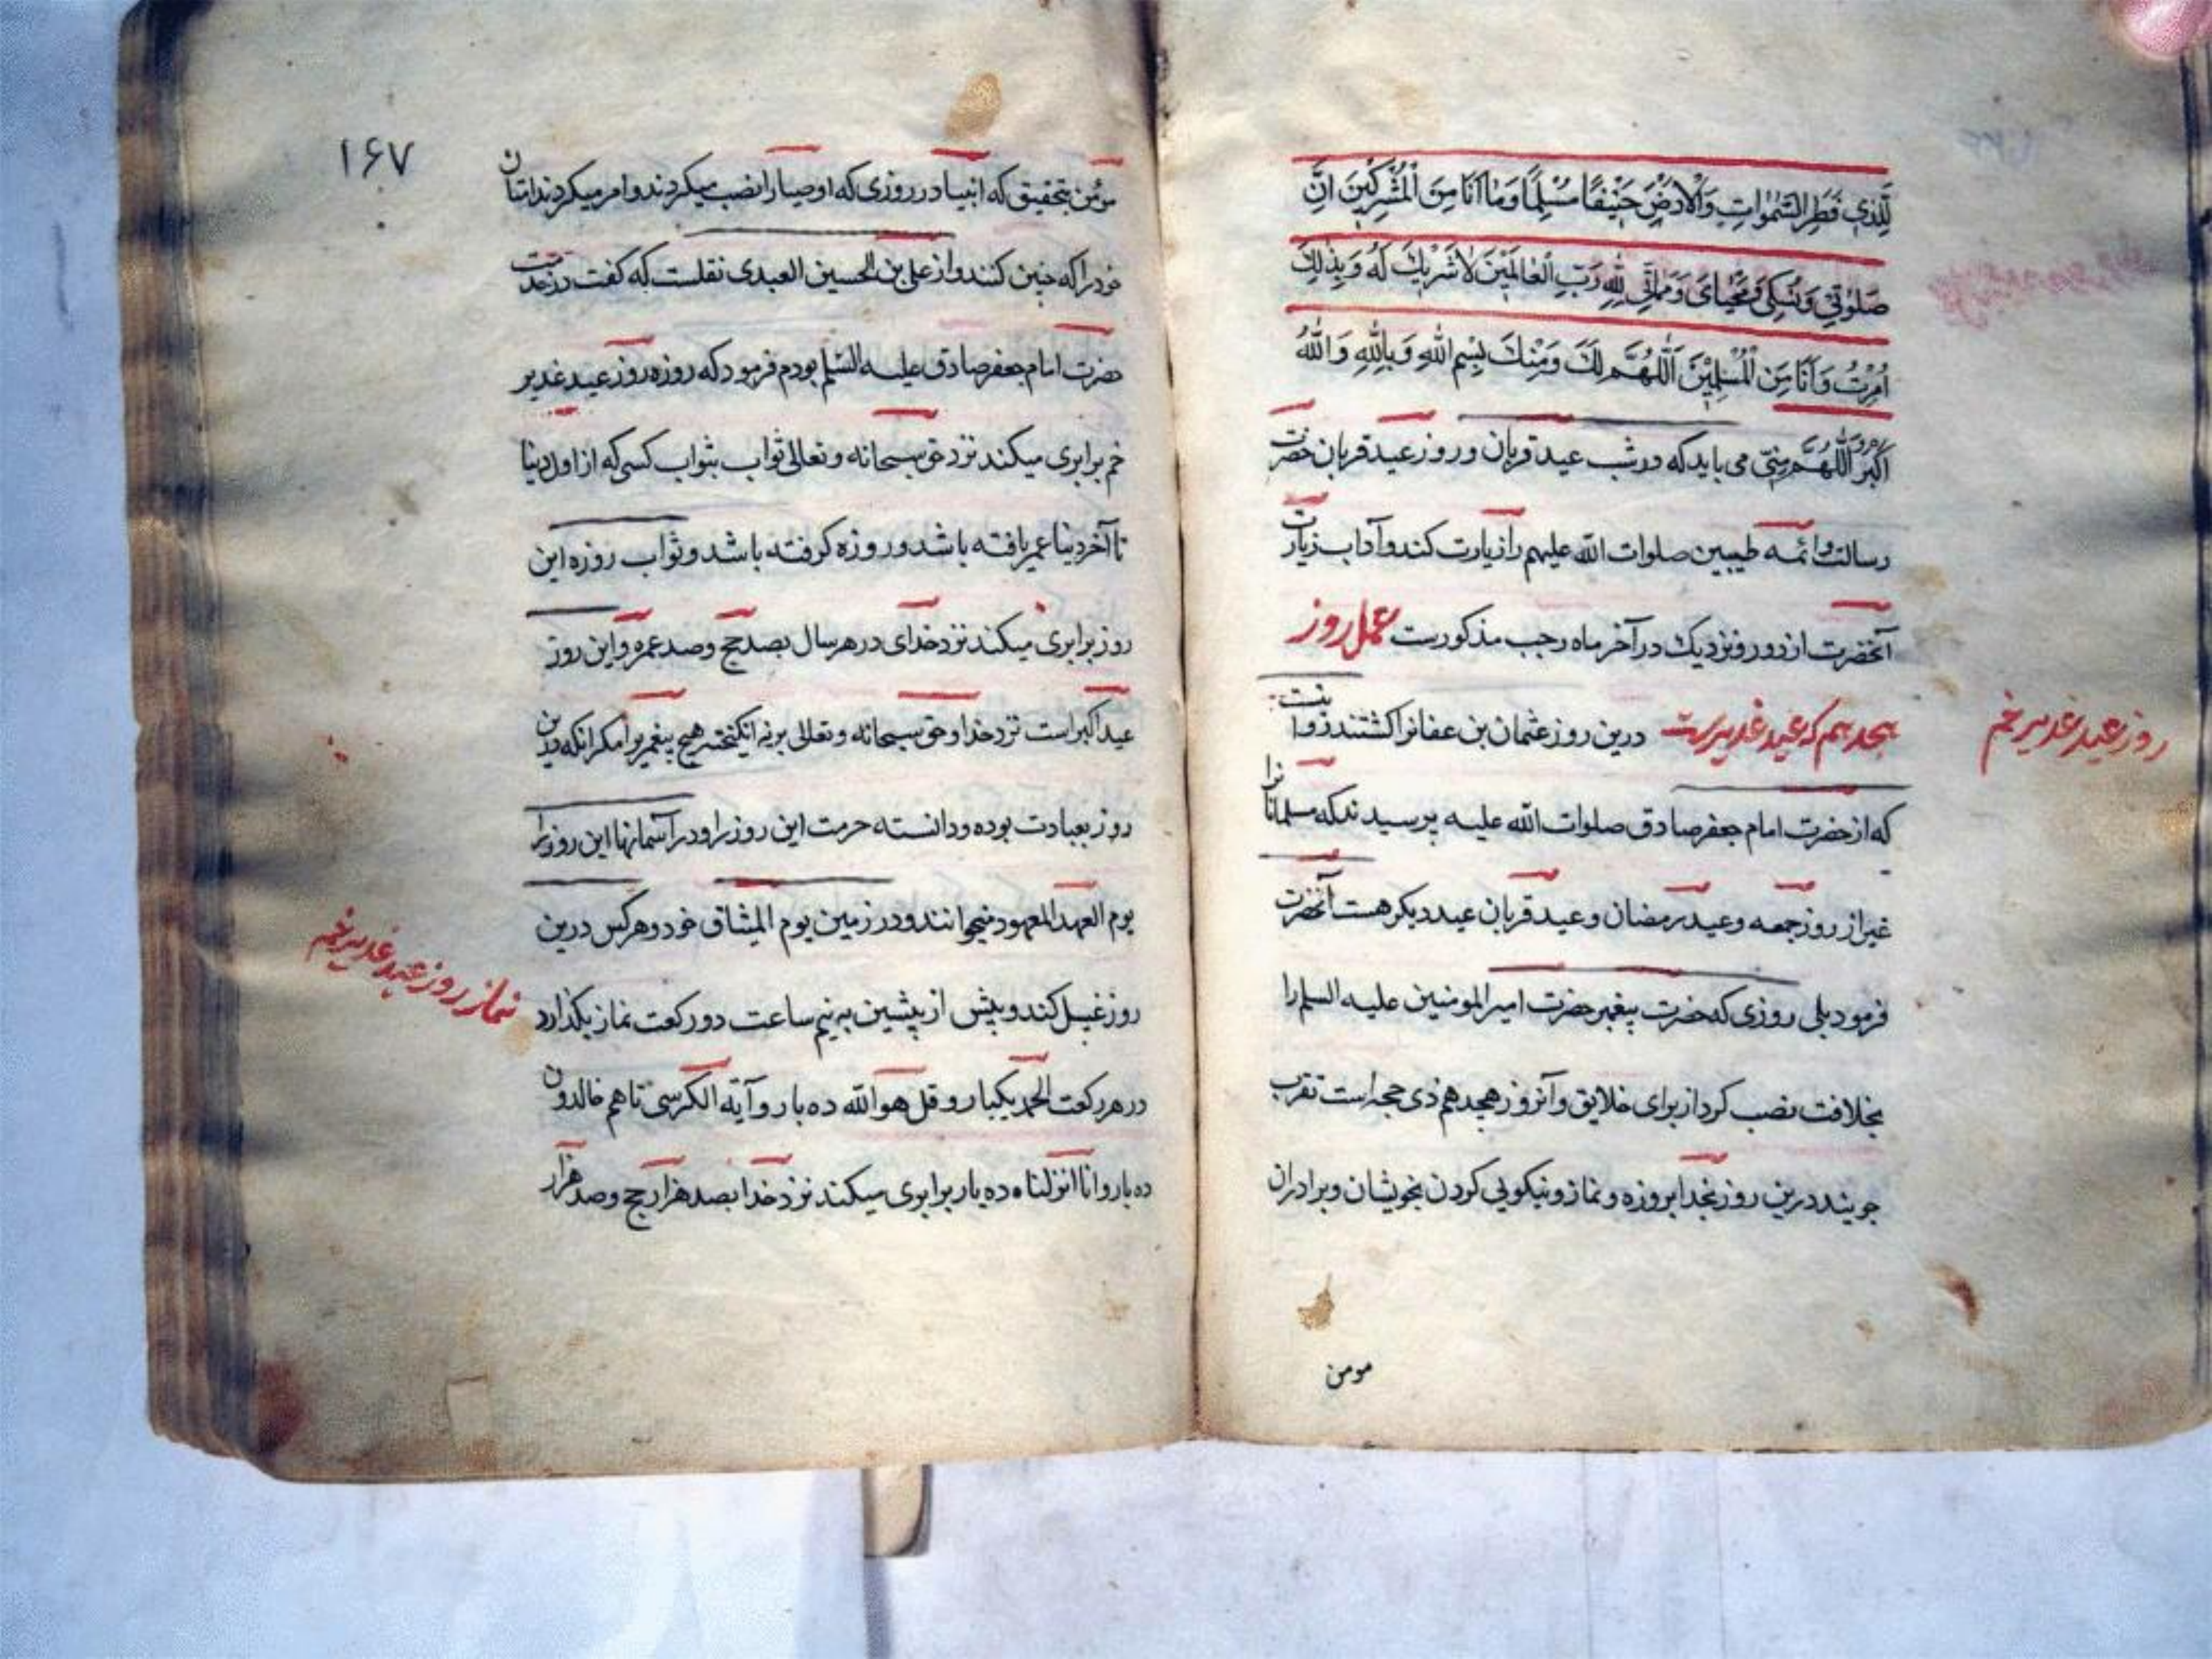 لِلَّذِي فَطَرَ السَّمٰوَاتِ وَالْاَرْضَ حَنِيْفًا مُسْلِمًا وَمَا اَنَا مِنَ الْمُشْرِكِيْنَ اِنَّ
صَلٰوتِيْ وَنُسُكِيْ وَمَحْيَايَ وَمَمَاتِيْ لِلّٰهِ رَبِّ الْعَالَمِيْنَ لَا شَرِيْكَ لَهُ وَبِذٰلِكَ
اُمِرْتُ وَاَنَا مِنَ الْمُسْلِمِيْنَ اَللّٰهُمَّ لَكَ وَمِنْكَ بِسْمِ اللّٰهِ وَبِاللّٰهِ وَاللّٰهُ
اَكْبَرُ اَللّٰهُمَّ مِنِّيْ می باید که در شب عید قربان و روز عید قربان حضرت
رسالت و ائمه طیبین صلوات الله علیهم را زیارت کند و آداب زیارت
آنحضرت از دور و نزدیك در آخر ماه رجب مذکورست عمل روز
هجدهم که عید غدیرست درین روز عثمان بن عفانرا کشتند
روز عید غدیر خم
که از حضرت امام جعفر صادق صلوات الله علیه پرسیدند که مسلمانانرا
غیر از روز جمعه و عید رمضان و عید قربان عید دیکر هست آنحضرت
فرمود بلی روزی که حضرت پیغمبر حضرت امیر المومنین علیه السلم را
بخلافت نصب کرد از برای خلایق و آنروز هجدهم ذی حجه است تقرب
جویند درین روز بخدا بروزه و نماز و نیکویی کردن بخویشان و برادران
مومن
۱۶۷
مؤمن بتحقیق که انبیا در روزی که اوصیا را نصب میکردند و امر میکردند امتان
خود را که چنین کنند و از علی بن الحسین العبدی نقلست که کفت در خدمت
حضرت امام جعفر صادق علیه السلم بودم فرمود که روزه روز عید غدیر
خم برابری میکند نزد حق سبحانه و تعالی ثواب بثواب کسی که از اول دنیا
تا آخر دنیا عمر یافته باشد و روزه کرفته باشد و ثواب روزه این
روز برابری میکند نزد خدای در هر سال بصد حج و صد عمره و این روز
عید اکبر است نزد خدا و حق سبحانه و تعالی برنه انکیخته هیچ پیغمبر را مکر انکه درین
روز بعبادت بوده و دانسته حرمت این روز را و در آسمانها این روز را
یوم العهد المعهود میخوانند و در زمین یوم المیثاق خود و هر کس درین
روز غسل کند و پیش از پیشین به نیم ساعت دو رکعت نماز بکذارد
نماز روز عید غدیر خم
در هر رکعت الحمد یکبار و قل هو الله ده بار و آیة الکرسی تا هم خالدون
ده بار و انا انزلناه ده بار برابری میکند نزد خدا بصد هزار حج و صد هزار